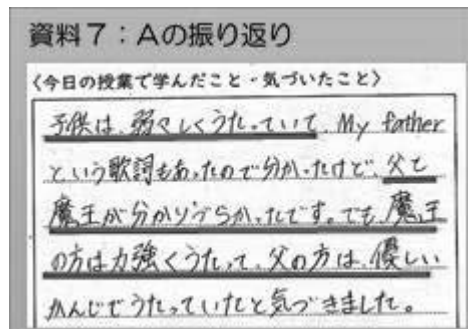 資料7:Aの振り返り
〈今日の授業で学んだこと・気づいたこと〉
子供は、弱々しくうたっていて、My father
という歌詞もあったので分かったけど、父と
魔王が分かりづらかったです。でも、魔王
の方は力強くうたって、父の方は、優しい
かんじでうたっていたと気づきました。